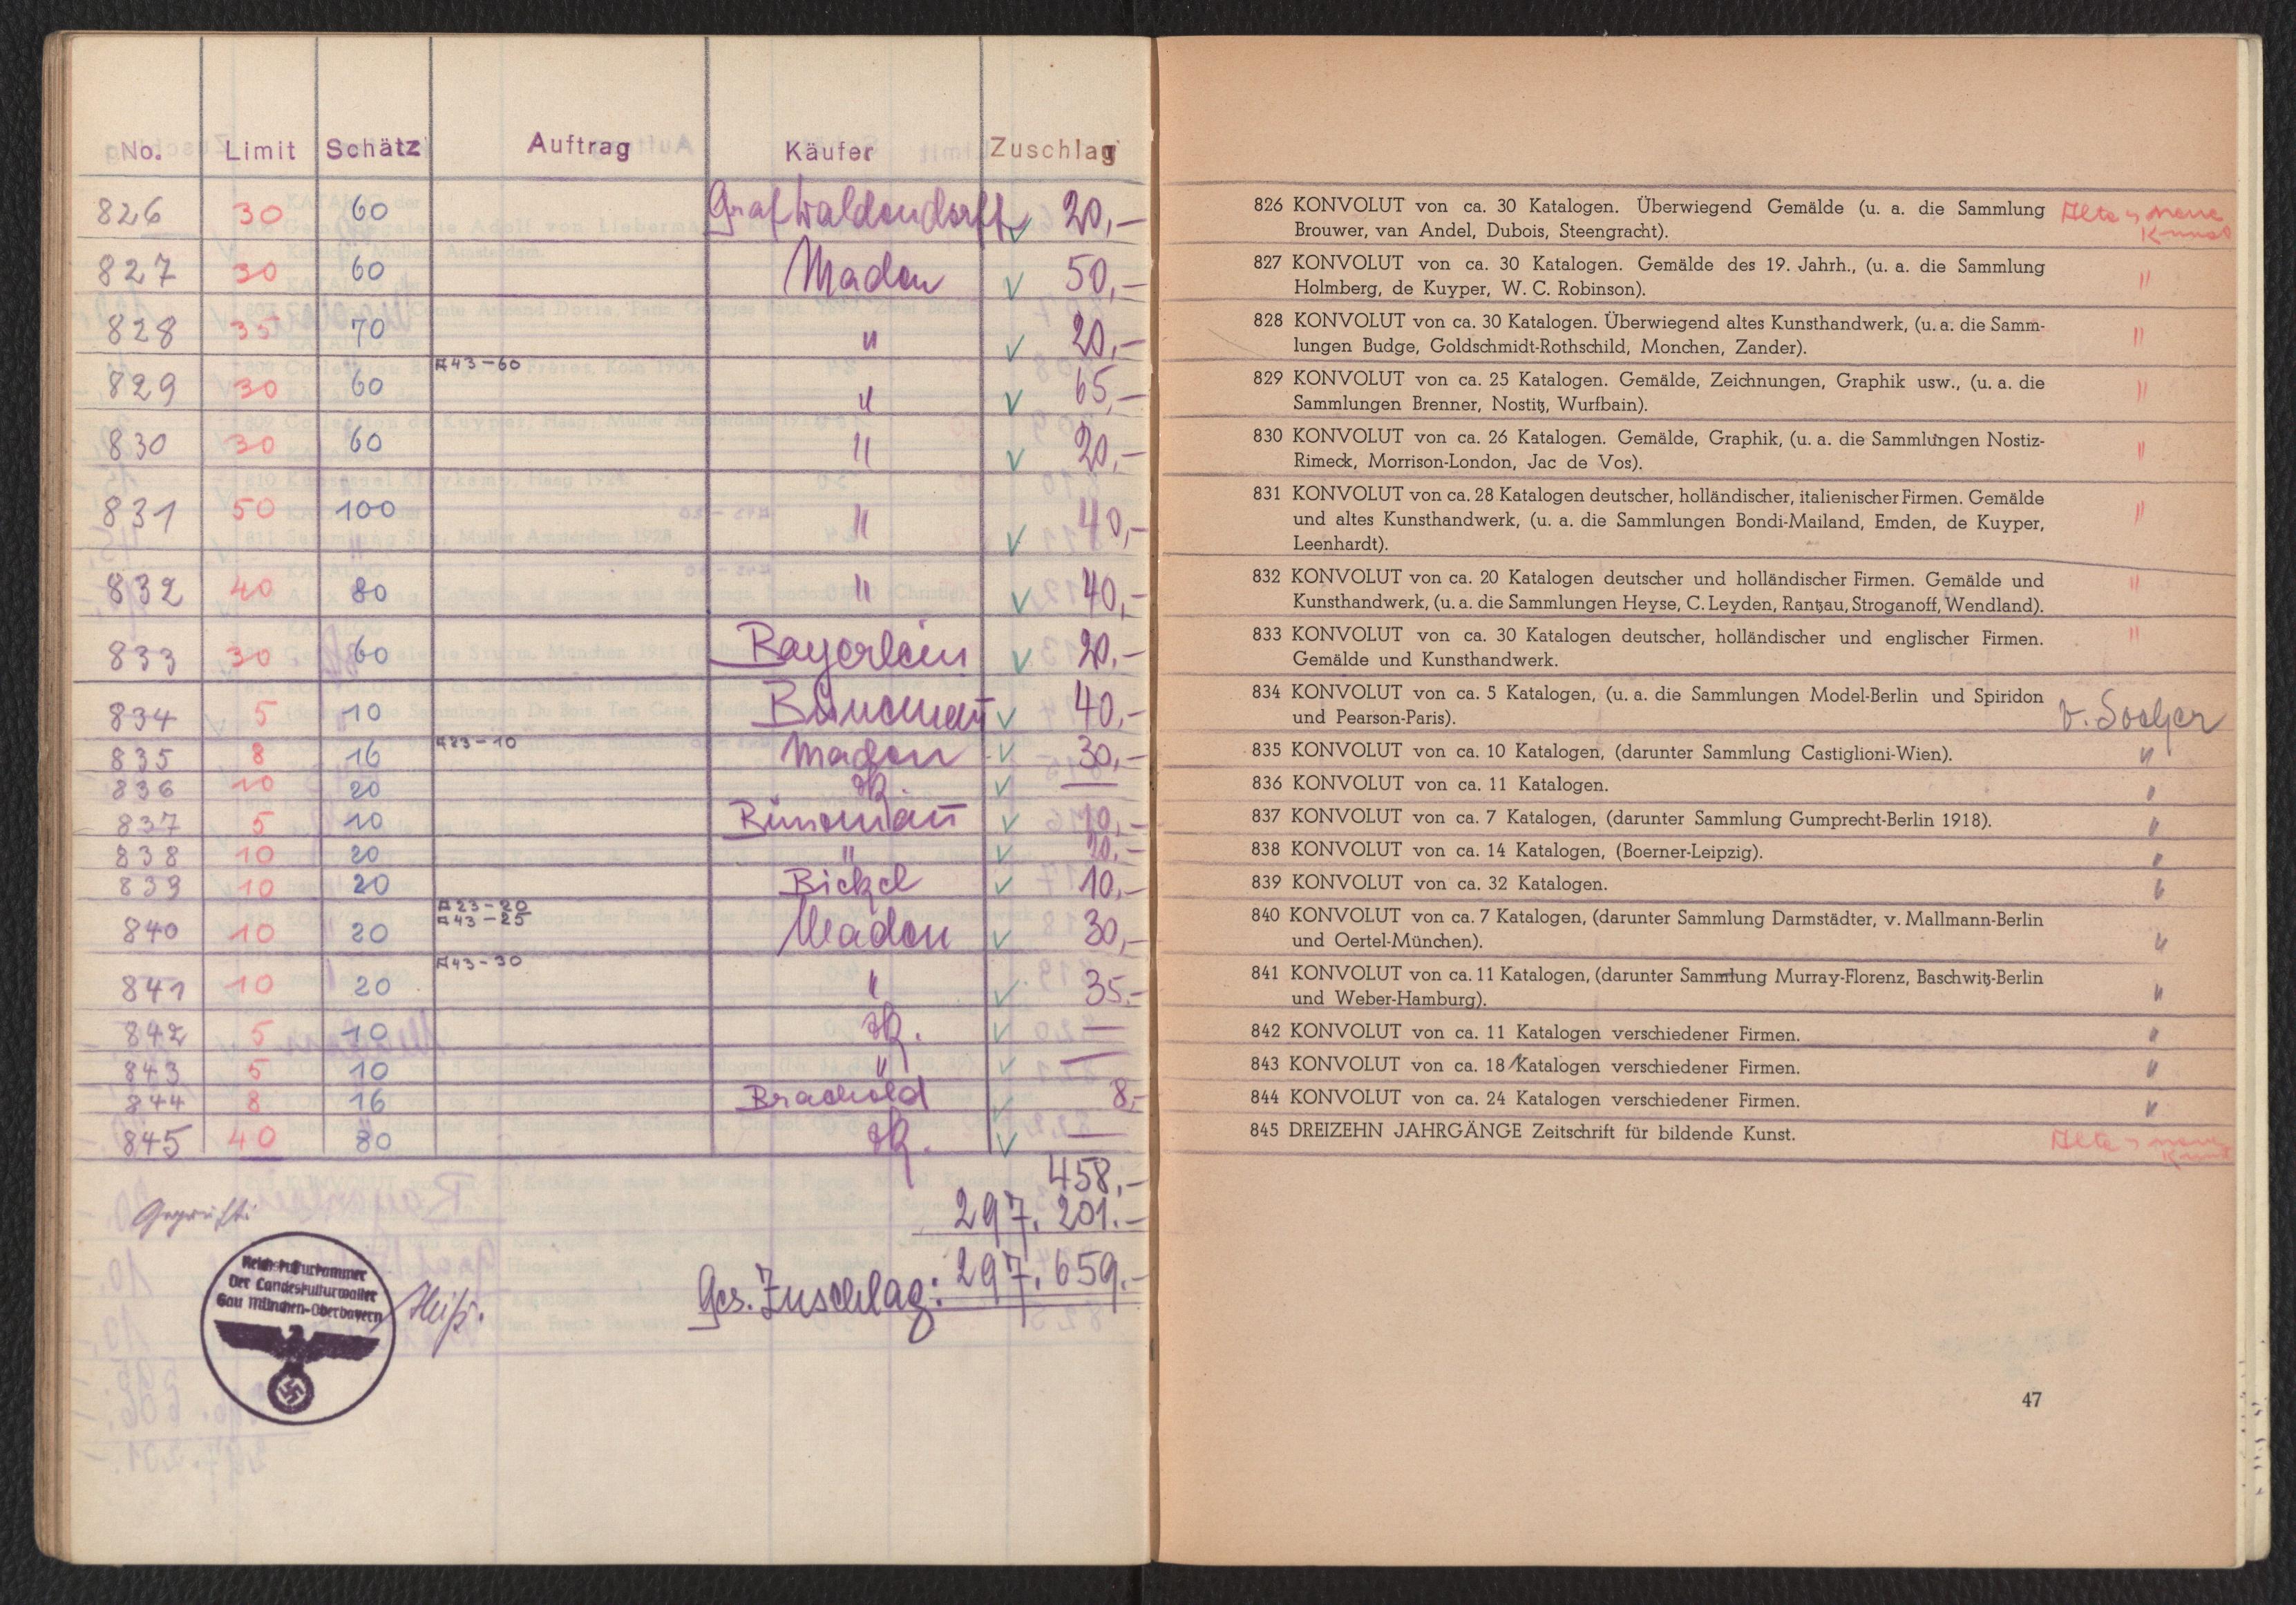 No. Limit Schätz Auftrag Käufer Zuschlag
826 30 60 Graf Waldendorff ✓ 20,—
827 30 60 Maden ✓ 50,—
828 35 70 " ✓ 20,—
829 30 60 43-60 " ✓ 65,—
830 30 60 " ✓ 20,—
831 50 100 " ✓ 40,—
832 40 80 " ✓ 40,—
833 30 60 Bayerlein ✓ 20.—
834 5 10 ✓ 40,—
835 8 16 23-10 Maden ✓ 30,—
836 10 20 ✓ —
837 5 10 ✓ 10,—
838 10 20 " ✓ 20.—
839 10 20 Bickel ✓ 10,—
840 10 20 23-20 43-25 Maden ✓ 30,—
841 10 20 43-30 " ✓ 35.—
842 5 10 ✓ —
843 5 10 " ✓ —
844 8 16 Brachold ✓ 8,—
845 40 80 ✓ —
458,—
297.201.—
Ges. Zuschlag: 297.659.—
Geprüft:
Reichskulturkammer
Der Landeskulturwalter
Gau München-Oberbayern
826 KONVOLUT von ca. 30 Katalogen. Überwiegend Gemälde (u. a. die Sammlung Alte u neue
Brouwer, van Andel, Dubois, Steengracht). Kunst
827 KONVOLUT von ca. 30 Katalogen. Gemälde des 19. Jahrh., (u. a. die Sammlung "
Holmberg, de Kuyper, W. C. Robinson).
828 KONVOLUT von ca. 30 Katalogen. Überwiegend altes Kunsthandwerk, (u. a. die Samm- "
lungen Budge, Goldschmidt-Rothschild, Monchen, Zander).
829 KONVOLUT von ca. 25 Katalogen. Gemälde, Zeichnungen, Graphik usw., (u. a. die "
Sammlungen Brenner, Nostitz, Wurfbain).
830 KONVOLUT von ca. 26 Katalogen. Gemälde, Graphik, (u. a. die Sammlungen Nostiz- "
Rimeck, Morrison-London, Jac de Vos).
831 KONVOLUT von ca. 28 Katalogen deutscher, holländischer, italienischer Firmen. Gemälde "
und altes Kunsthandwerk, (u. a. die Sammlungen Bondi-Mailand, Emden, de Kuyper,
Leenhardt).
832 KONVOLUT von ca. 20 Katalogen deutscher und holländischer Firmen. Gemälde und "
Kunsthandwerk, (u. a. die Sammlungen Heyse, C. Leyden, Rantzau, Stroganoff, Wendland).
833 KONVOLUT von ca. 30 Katalogen deutscher, holländischer und englischer Firmen. "
Gemälde und Kunsthandwerk.
834 KONVOLUT von ca. 5 Katalogen, (u. a. die Sammlungen Model-Berlin und Spiridon
und Pearson-Paris).
835 KONVOLUT von ca. 10 Katalogen, (darunter Sammlung Castiglioni-Wien). "
836 KONVOLUT von ca. 11 Katalogen. "
837 KONVOLUT von ca. 7 Katalogen, (darunter Sammlung Gumprecht-Berlin 1918). "
838 KONVOLUT von ca. 14 Katalogen, (Boerner-Leipzig). "
839 KONVOLUT von ca. 32 Katalogen. "
840 KONVOLUT von ca. 7 Katalogen, (darunter Sammlung Darmstädter, v. Mallmann-Berlin
und Oertel-München). "
841 KONVOLUT von ca. 11 Katalogen, (darunter Sammlung Murray-Florenz, Baschwitz-Berlin
und Weber-Hamburg). "
842 KONVOLUT von ca. 11 Katalogen verschiedener Firmen. "
843 KONVOLUT von ca. 18 Katalogen verschiedener Firmen. "
844 KONVOLUT von ca. 24 Katalogen verschiedener Firmen. "
845 DREIZEHN JAHRGÄNGE Zeitschrift für bildende Kunst. Alte u neue
Kunst
47